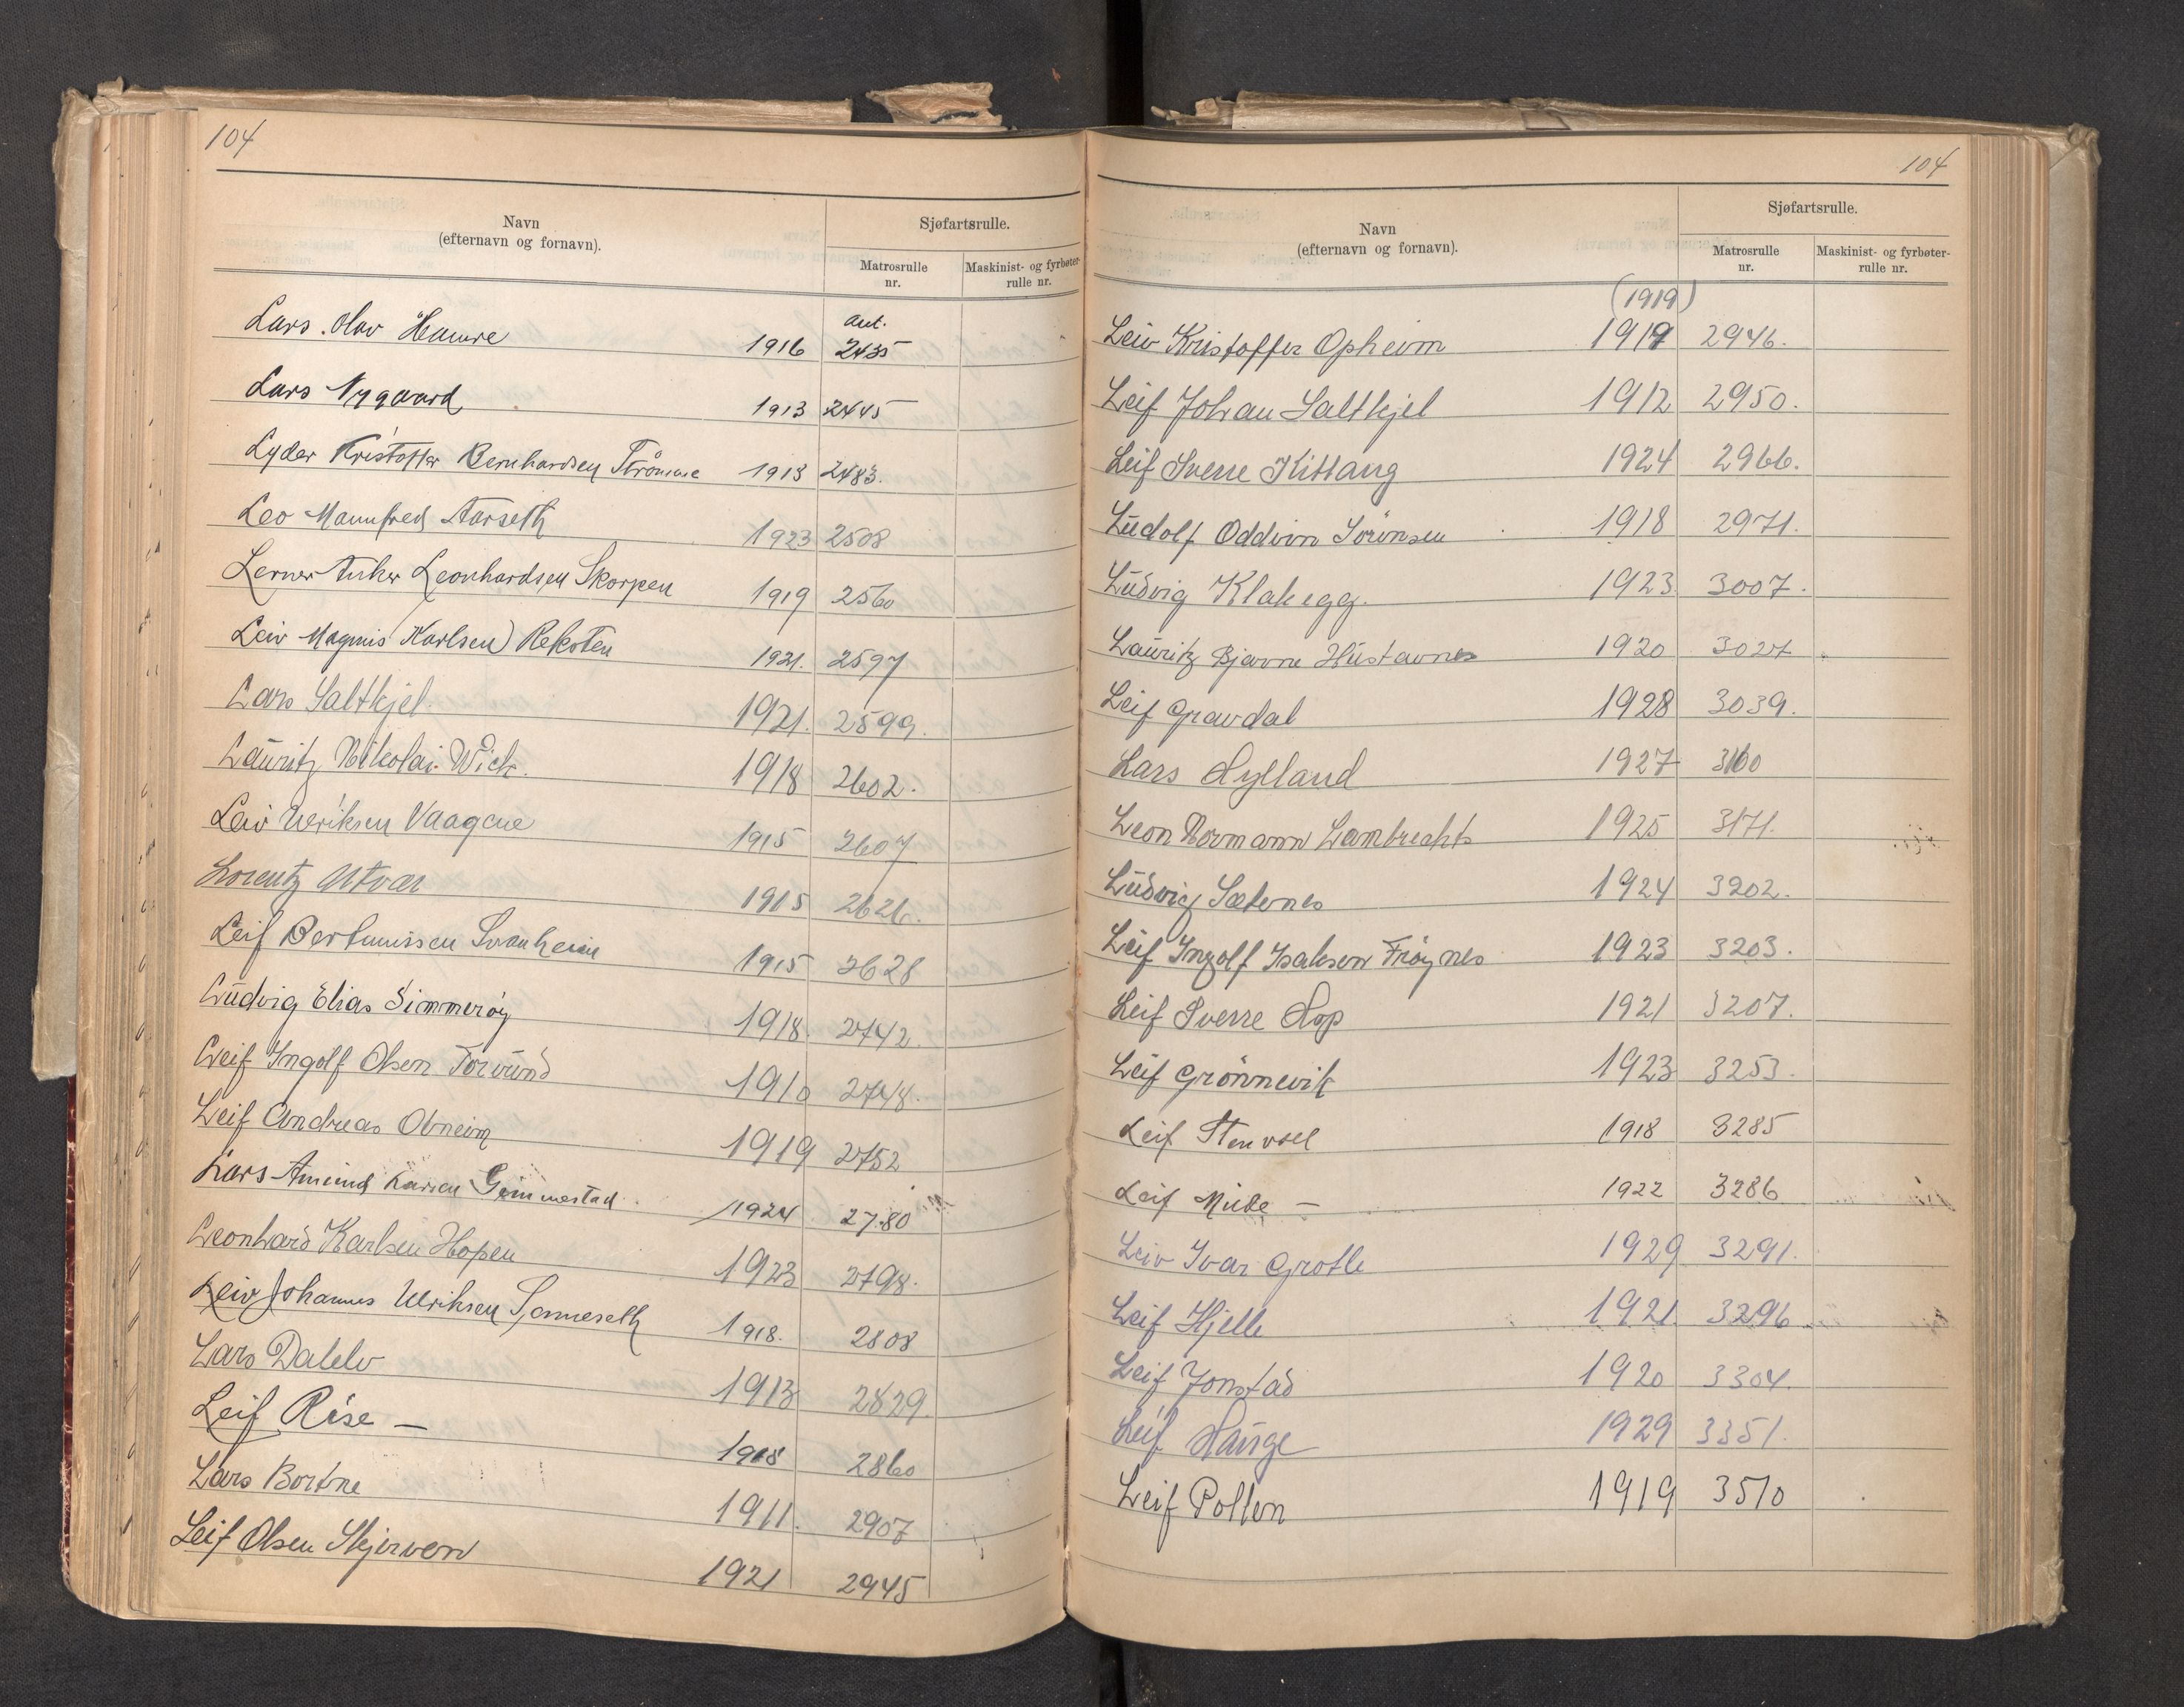 104
Navn
(efternavn og fornavn).
Sjøfartsrulle.
Matrosrulle
nr.
Maskinist- og fyrbøter-
rulle nr.
Lars Olav Hamre 1916 aut. 2435
Lars Nygaard 1913 2445
Lyder Kristoffer Bernhardsen Strömme 1913 2483.
Leo Mannfred Aarseth 1923 2508
Lerner Anker Leonhardsen Skorpen 1919 2560
Leiv Magnus Karlsen) Reksten 1921. 2597
Lars Saltkjel 1921. 2599.
Lauritz Nikolai Wick. 1918 2602.
Leiv Ulriksen Vaagene 1915 2607
Lorentz Utvær 1915 2626.
Leif Bertinussen Svanheim 1915 2628
Ludvig Elias Simmerøy 1918. 2742.
Leif Ingolf Olsen Torvund 1910 2748.
Leif Andreas Obneim 1919 2752
Lars Amund Larsen Gimmestad 1924 2780
Leonhard Karlsen Hopen 1923 2798.
Leiv Johannes Ulriksen Sönneseth 1918. 2808
Lars Dalelv 1913 2829.
Leif Rise — 1918 2860
Lars Bortne 1911. 2907
Leif Olsen Skjerven 1921 2945
104
Navn
(efternavn og fornavn).
Sjøfartsrulle.
Matrosrulle
nr.
Maskinist- og fyrbøter-
rulle nr.
(1919)
Leiv Kristoffer Opheim 1919 2946.
Leif Johan Saltkjel 1912 2950.
Leif Sverre Kittang 1924 2966.
Ludolf Oddvin Sörensen 1918 2971.
Ludvig Klakegg. 1923 3007.
Lauritz Bjarne Hustavnes 1920 3027
Leif Gravdal 1928 3039.
Lars Hylland 1927 3160
Leon Normann Lambrechts 1925 3171.
Ludvig Sæternes 1924 3202.
Leif Ingolf Isaksen Fröynes 1923 3203.
Leif Sverre Hop 1921 3207.
Leif Grönnevik 1923 3253.
Leif Stenvoel 1918 3285
Leif Midbe — 1922 3286
Leiv Ivar Grotle 1929 3291.
Leif Hjelle 1921 3296
Leif Jonstad 1920 3304.
Leif Hauge 1929 3351.
Leif Pollen 1919 3510